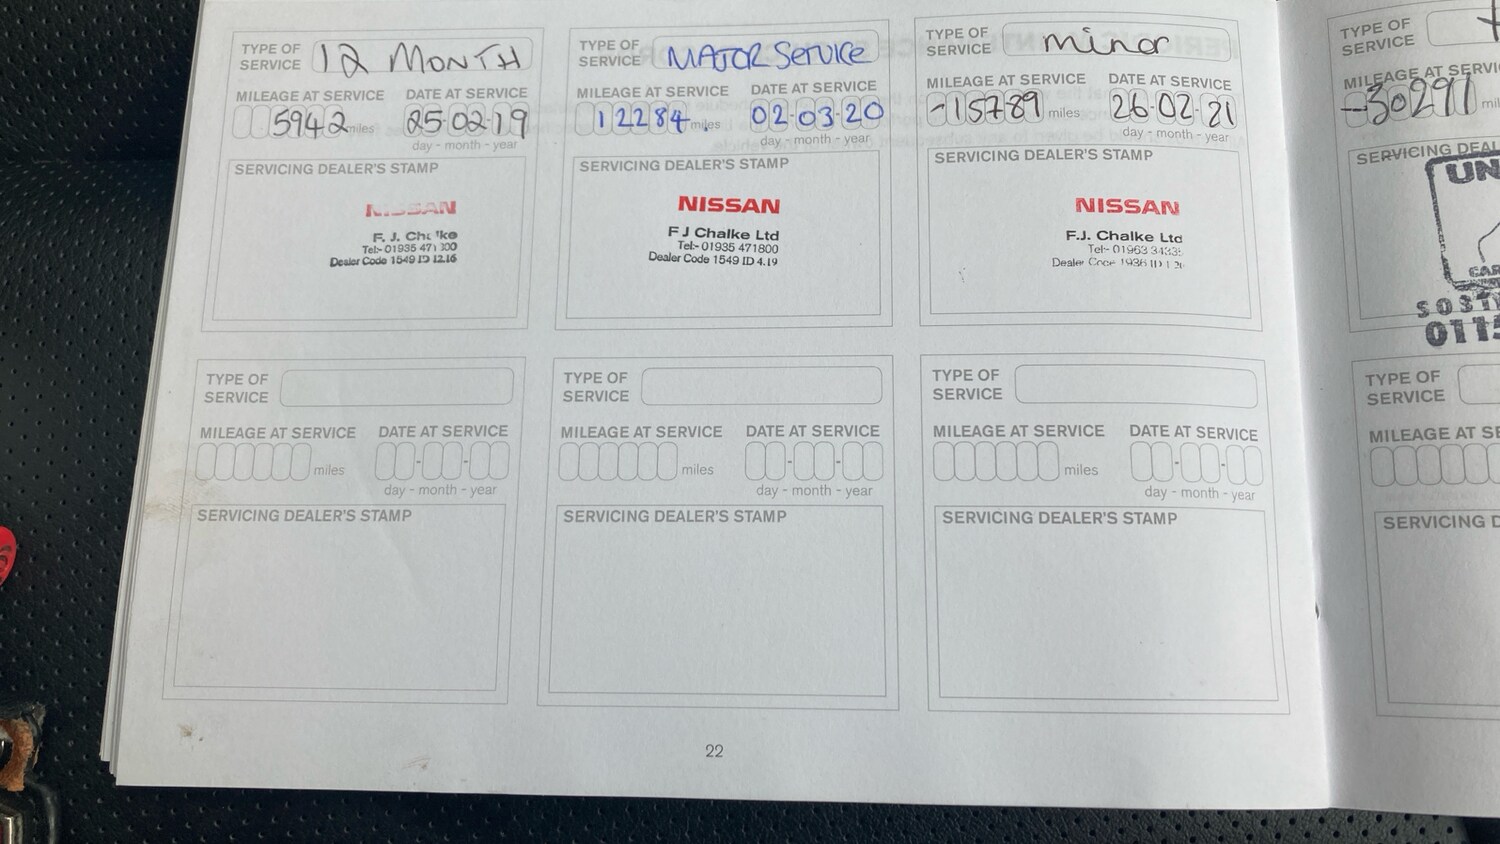 TYPE OF SERVICE 12 MONTH
MILEAGE AT SERVICE DATE AT SERVICE
5942 miles 25-02-19
day - month - year
SERVICING DEALER'S STAMP
NISSAN
F. J. Chalke
Tel:- 01935 471800
Dealer Code 1549 ID 12.16
TYPE OF SERVICE MAJOR SERVICE
MILEAGE AT SERVICE DATE AT SERVICE
12284 miles 02-03-20
day - month - year
SERVICING DEALER'S STAMP
NISSAN
F J Chalke Ltd
Tel:- 01935 471800
Dealer Code 1549 ID 4.19
TYPE OF SERVICE minor
MILEAGE AT SERVICE DATE AT SERVICE
-15789 miles 26-02-21
day - month - year
SERVICING DEALER'S STAMP
NISSAN
F.J. Chalke Ltd
Tel:- 01963
Dealer
TYPE OF SERVICE
MILEAGE AT SERVI
-30291 mil
SERVICING DEAL
UN
CAR
0115
TYPE OF SERVICE
MILEAGE AT SERVICE DATE AT SERVICE
miles
day - month - year
SERVICING DEALER'S STAMP
TYPE OF SERVICE
MILEAGE AT SERVICE DATE AT SERVICE
miles
day - month - year
SERVICING DEALER'S STAMP
TYPE OF SERVICE
MILEAGE AT SERVICE DATE AT SERVICE
miles
day - month - year
SERVICING DEALER'S STAMP
TYPE OF SERVICE
MILEAGE AT S
SERVICING D
22